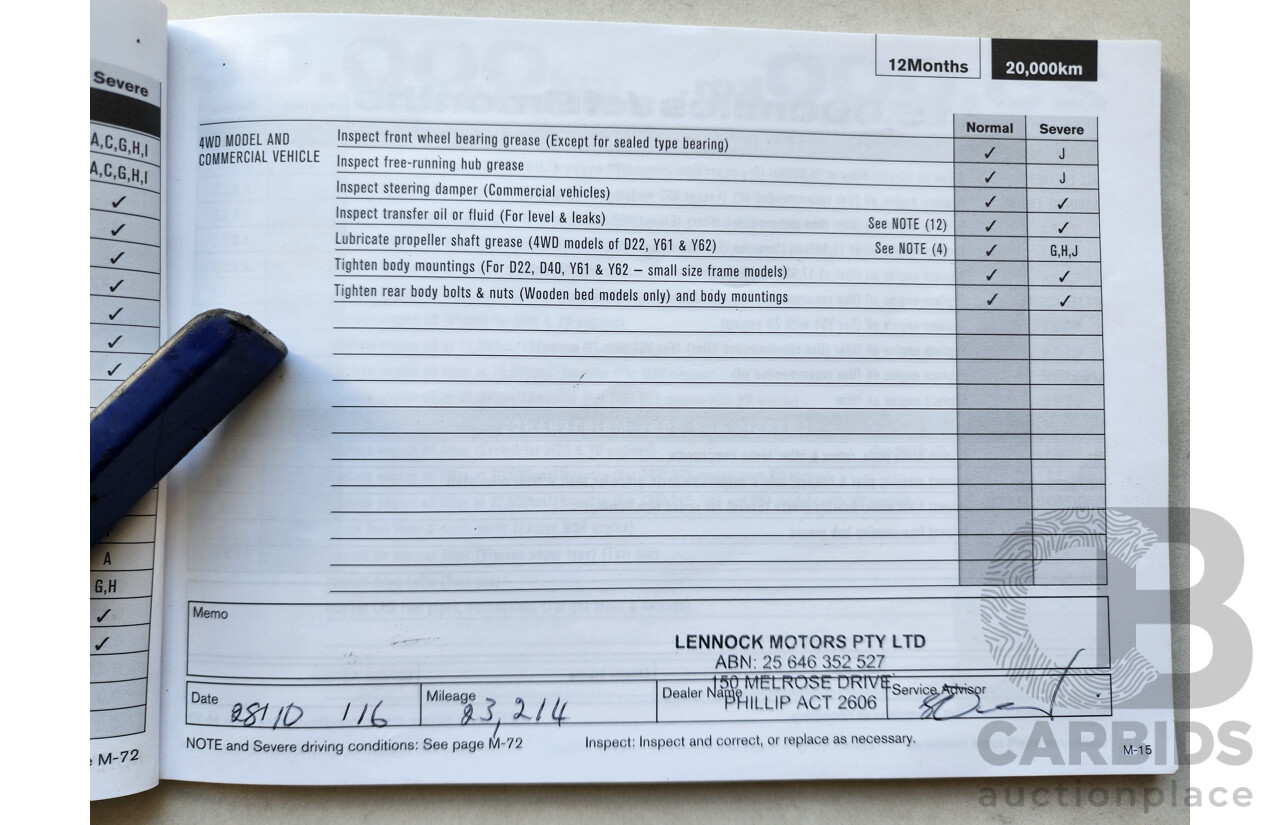 Severe
A,C,G,H,I
A,C,G,H,I
✓
✓
✓
✓
✓
✓
✓
A
G,H
✓
✓
M-72
12Months 20,000km
Normal Severe
4WD MODEL AND
COMMERCIAL VEHICLE
Inspect front wheel bearing grease (Except for sealed type bearing) ✓ J
Inspect free-running hub grease ✓ J
Inspect steering damper (Commercial vehicles) ✓ ✓
Inspect transfer oil or fluid (For level & leaks) See NOTE (12) ✓ ✓
Lubricate propeller shaft grease (4WD models of D22, Y61 & Y62) See NOTE (4) ✓ G,H,J
Tighten body mountings (For D22, D40, Y61 & Y62 – small size frame models) ✓ ✓
Tighten rear body bolts & nuts (Wooden bed models only) and body mountings ✓ ✓
Memo
LENNOCK MOTORS PTY LTD
ABN: 25 646 352 527
150 MELROSE DRIVE
PHILLIP ACT 2606
Date 28/10 116
Mileage 23,214
Dealer Name
Service Advisor
NOTE and Severe driving conditions: See page M-72 Inspect: Inspect and correct, or replace as necessary.
M-15
CB
CARBIDS
auctionplace